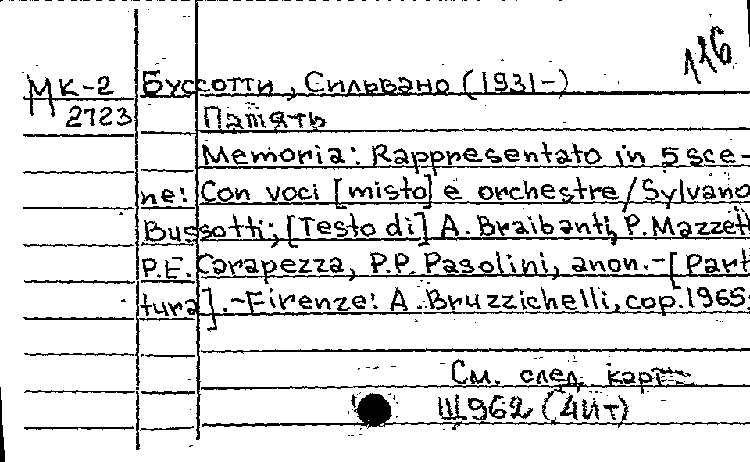 116
МК-2 Буссотти, Сильвано (1931-)
2723 Память
Memoria: Rappresentato in 5 sce-
ne: Con voci [misto] e orchestre/Sylvano
Bussotti; [Testo di] A. Braibanti, P. Mazzett
P.E. Carapezza, P.P. Pasolini, anon.-[Part
tura].-Firenze: A. Bruzzichelli, cop. 1965;
См. след. карт
Щ962 (4Ит)